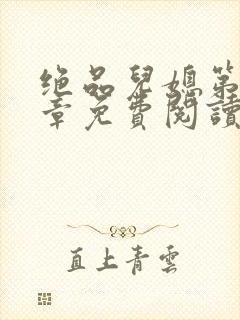 绝品兒媳第
章免費閱讀
直上青雲